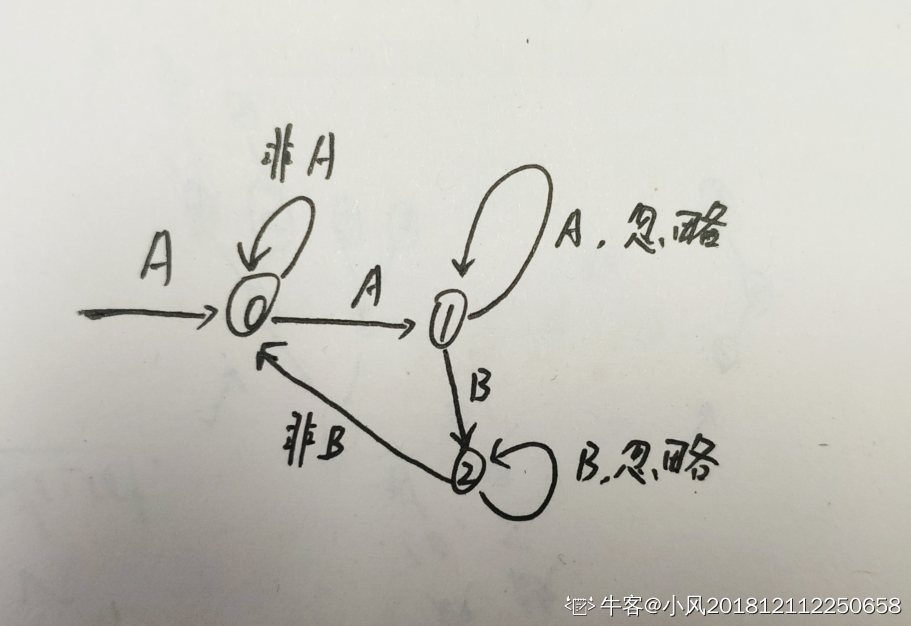 非A
A
A
A，忽略
0
1
B
非B
2
B，忽略
牛客@小风201812112250658